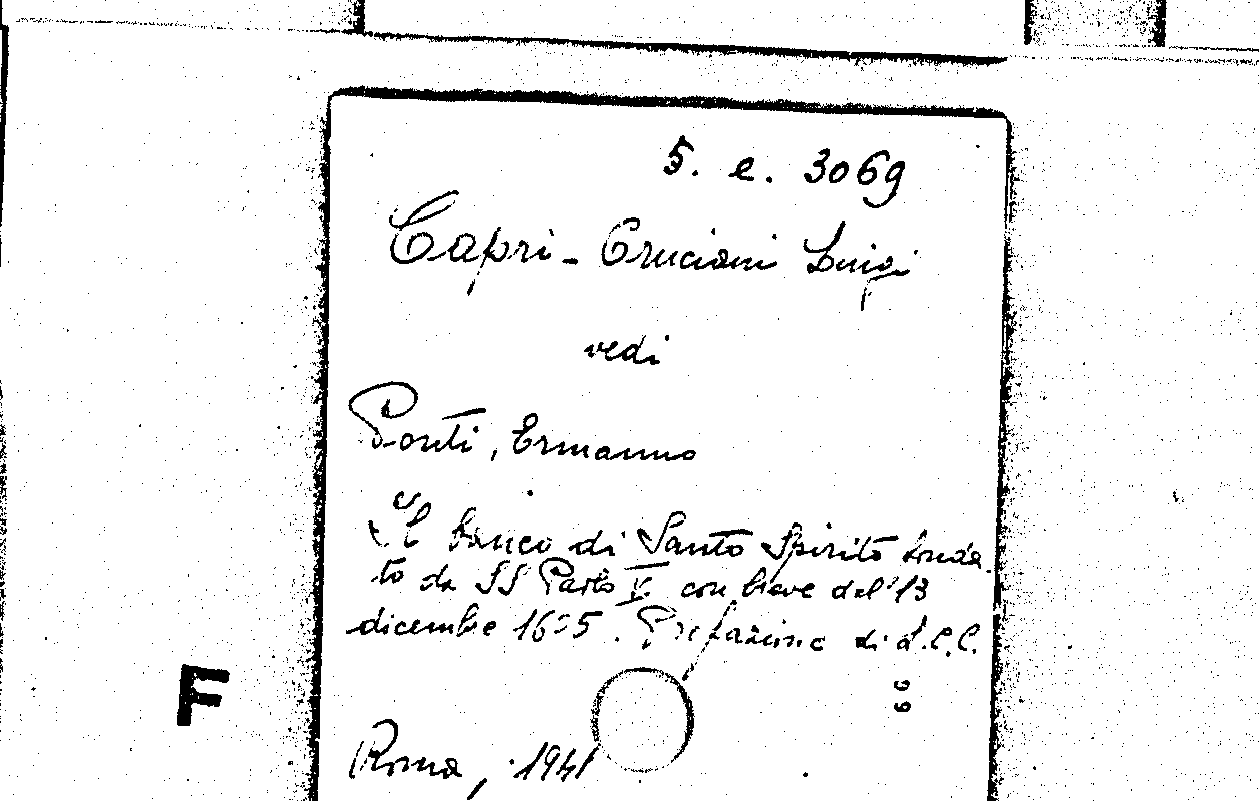 5. e. 3069
Capri-Cruciani Luigi
vedi
Ponti, Ermanno
Il banco di Santo Spirito fonda
to da SS Paolo V con breve del 13
dicembre 1605. Prefazione di L.C.C.
60
F
Roma, 1941